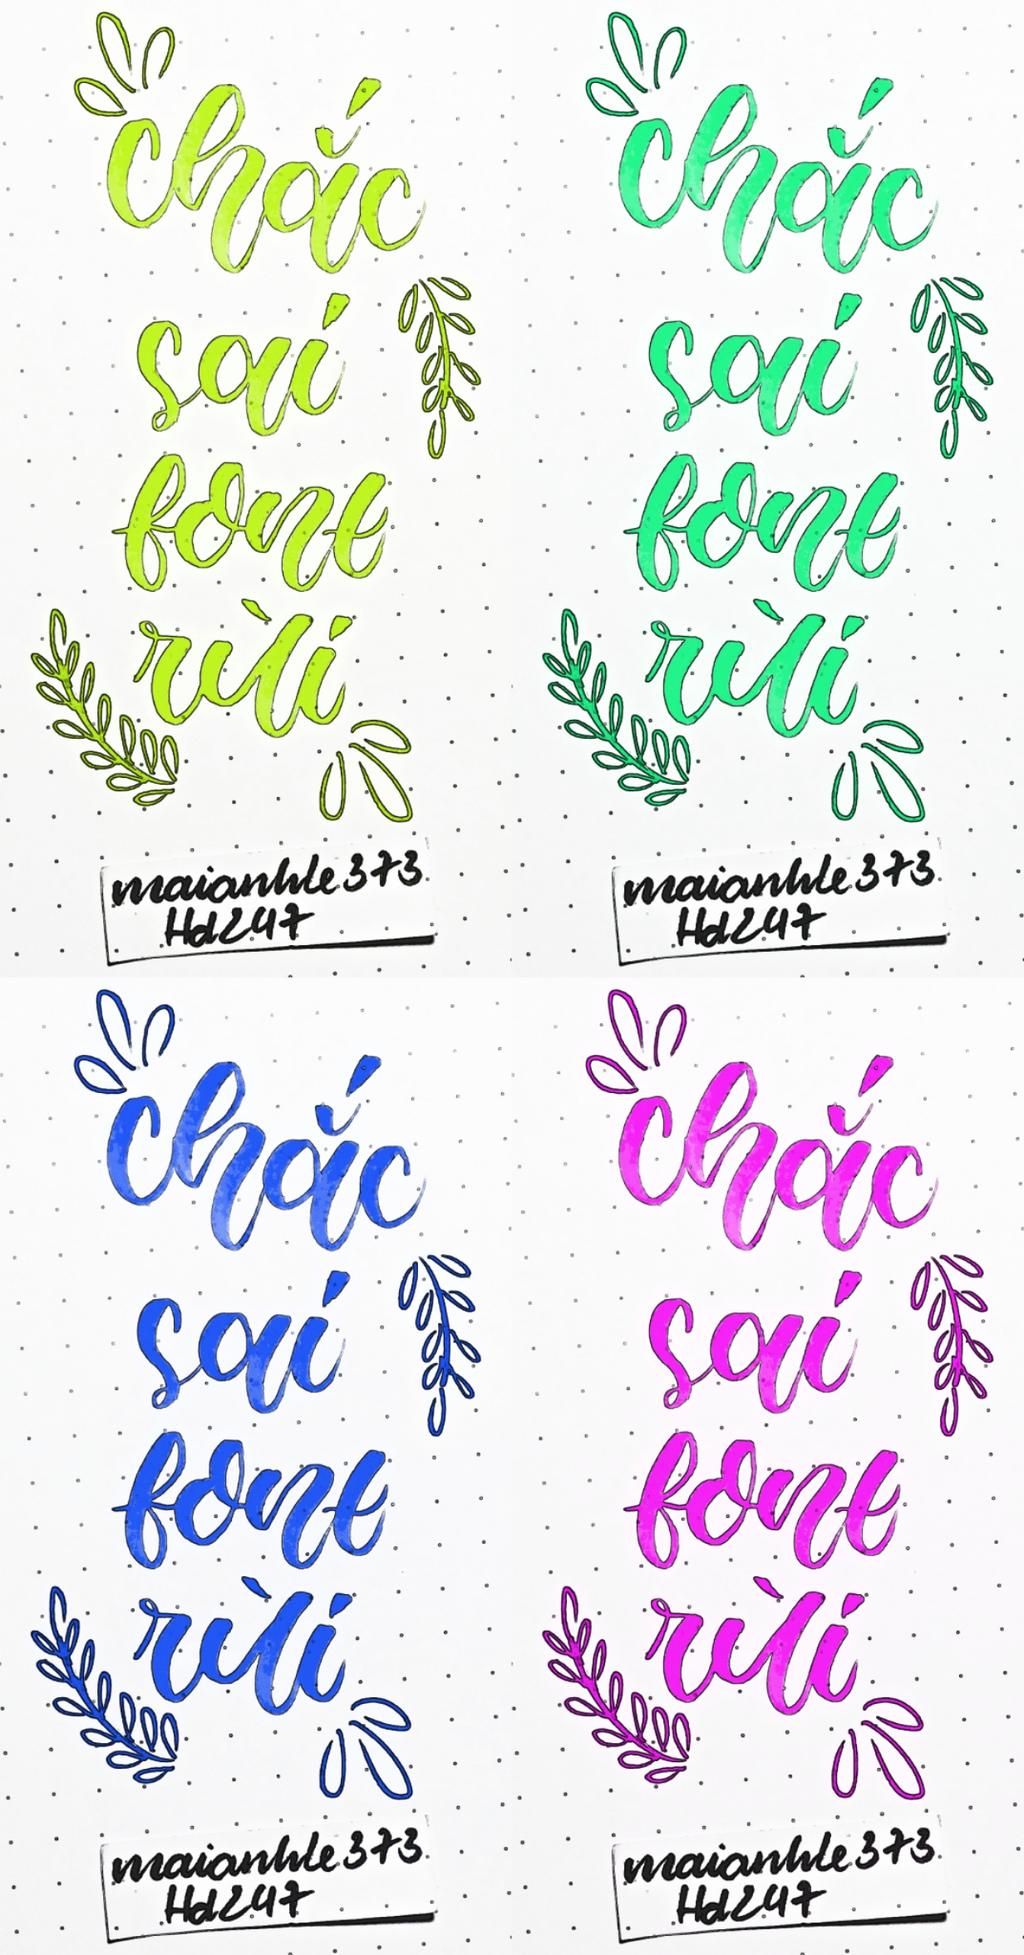 chắc
sai
font
rùi
maianhle373
Hd247
chắc
sai
font
rùi
maianhle373
Hd247
chắc
sai
font
rùi
maianhle373
Hd247
chắc
sai
font
rùi
maianhle373
Hd247